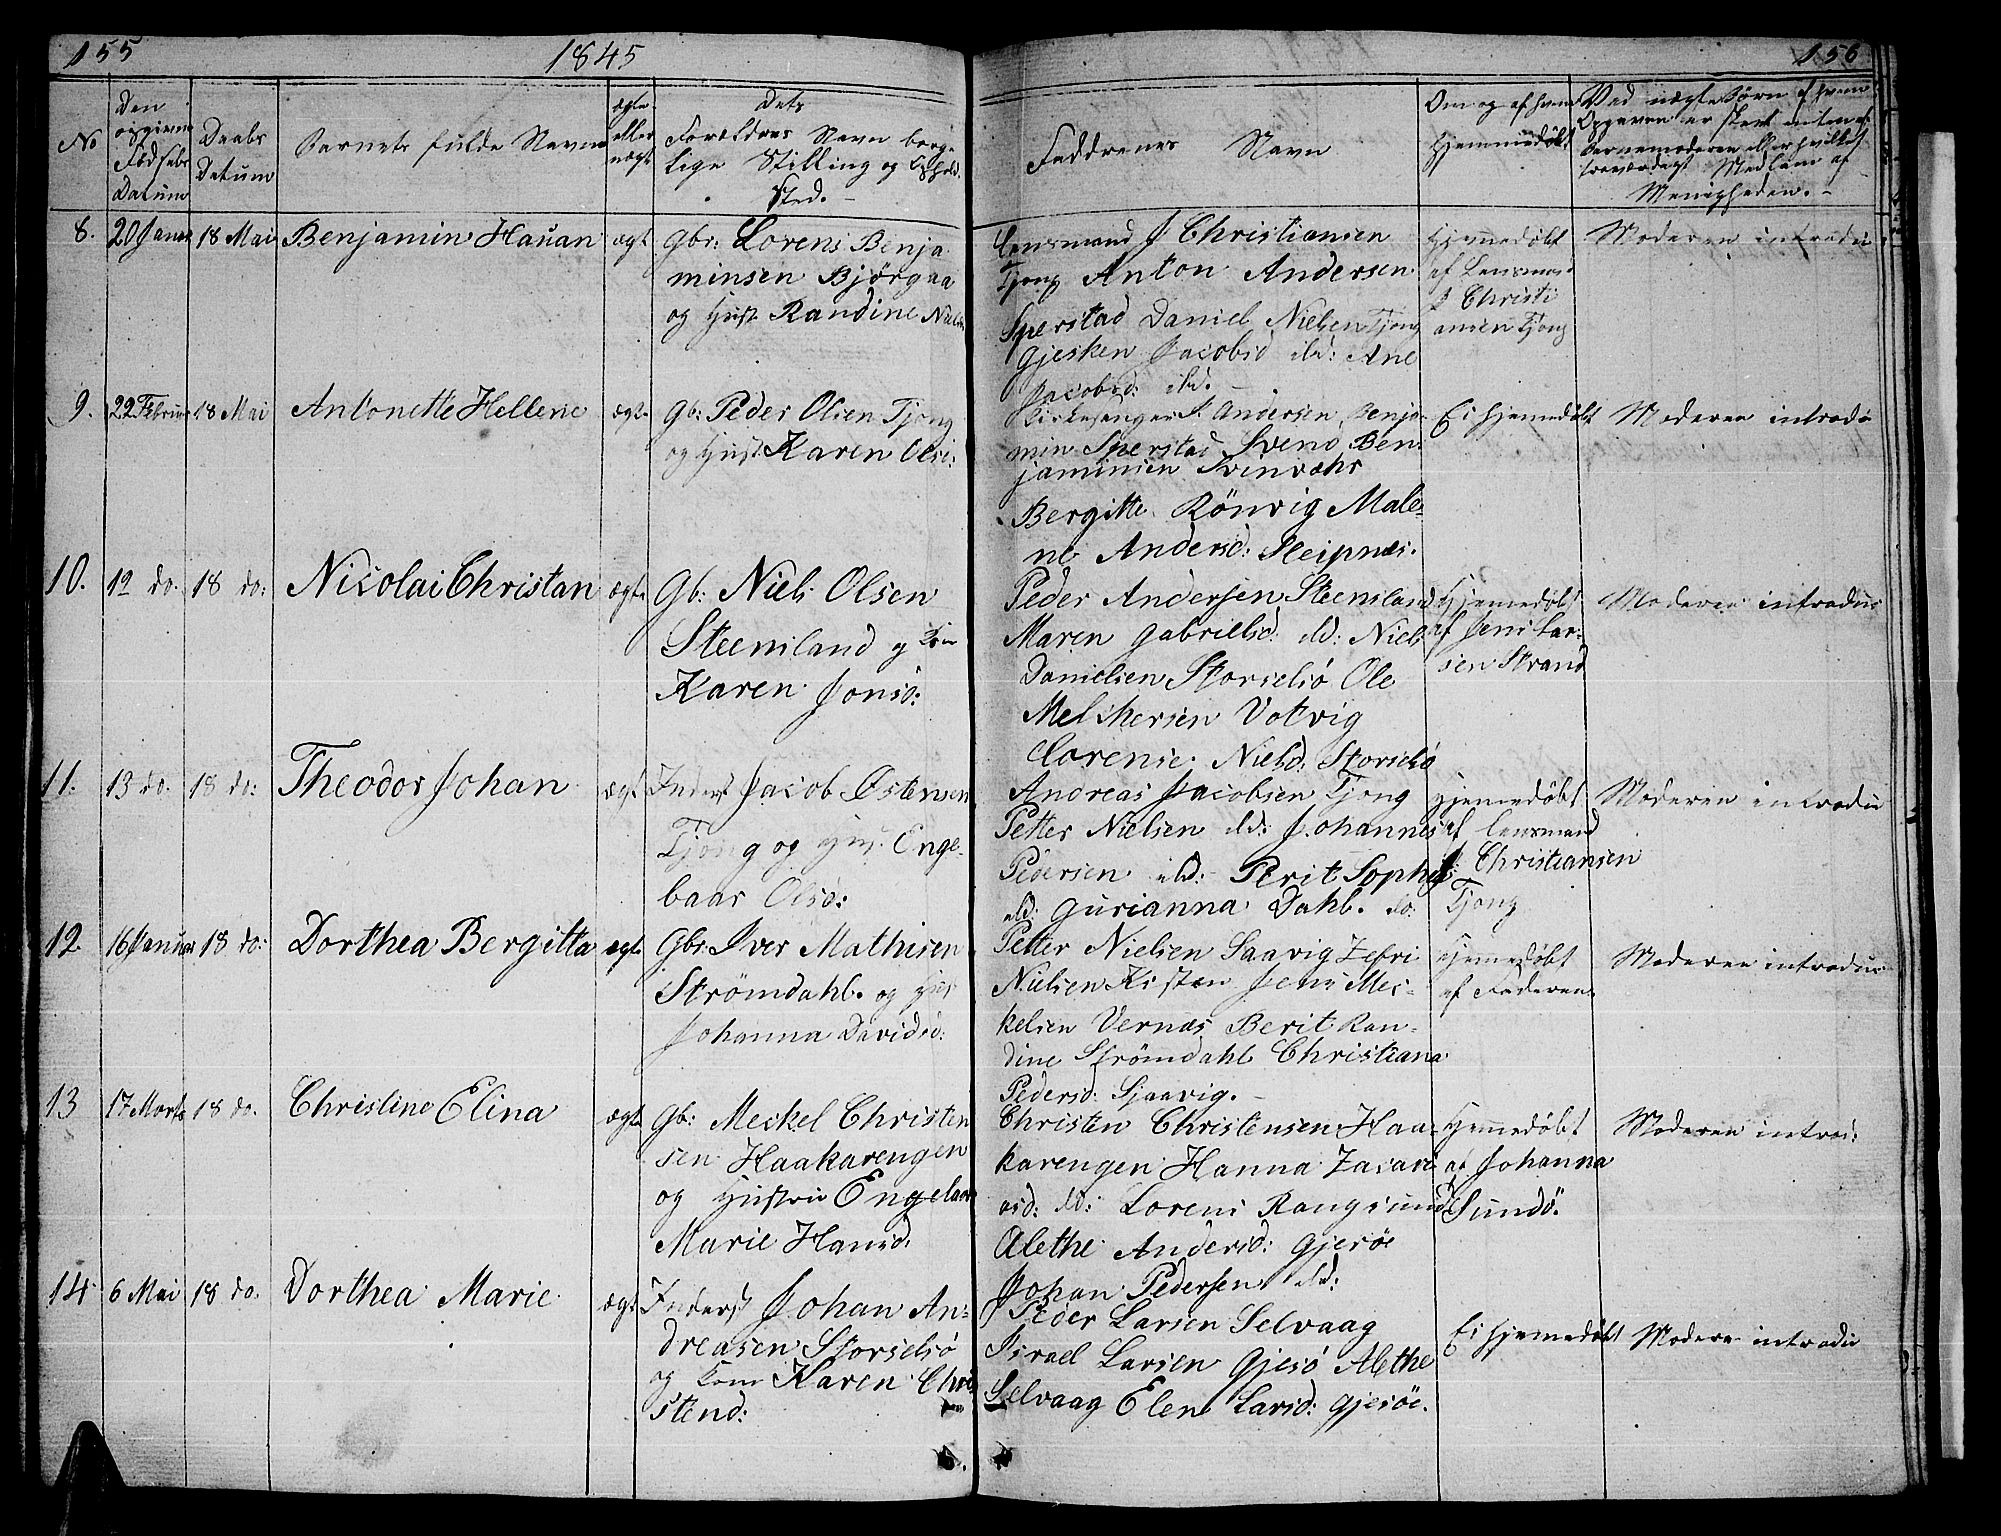 155
1845
156
No
Den
opgivne
Fødsels
Datum
Daabs
Datum
Barnets fulde Navn
ægte
eller
uægt
Dets
Forældres Navn borge
lige Stilling og Ophold.
Sted.
Faddrenes Navn
Om og af hvem
Hjemmedøbt
Ved uægte Børn af hvem
Opgaven er skeet enten af
Barnemoderen eller hvilket
troværdigt Medlem af
Menigheden.
8. 20 Janua 18 Mai Benjamin Hauan ægt
Gbr: Lorens Benja
minsen Bjørgaa
og Hust Randine Niels
Lensmand J Christiansen
Tjong Anton Andersen
Sperstad Daniel Nielsen Tjong
Gjesken Jacobsd ibd: Ane
Jacobsd: ibd.
Hjemedøbt
af Lensman
J Christi
ansen Tjong
Moderen introdu
9. 22 Februar 18 Mai Antonette Hellene ægt
Gb: Peder Olsen Tjong
og Hust Karen Olsd:
Kirkesanger J. Andersen, Benja-
min Sperstad Svend Ben-
jaminsen Svinvær
Bergitte Rönvig Male-
ne Andersd: Sleipnæs.
Ei Hjemedøbt
Moderen introdu
10. 12 do. 18 do: Nicolai Christan ægte
Gb: Niels Olsen
Steensland og Kone
Karen Jonsd:
Peder Andersen Steensland
Maren Gabrielsd: ibd: Niels
Danielsen Storselsö Ole
Melchersen Votvig
Lorense Nielsd: Storselsö
Hjemedøbt
af Jens Lar-
sen Strand
Moderen introdus
11. 13 do. 18 do: Theodor Johan ægt
Inderst Jacob Østensen
Tjong og Hus. Enge-
baar Olsd:
Andreas Jacobsen Tjong
Petter Nielsen ibd: Johannes
Pedersen ibd: Perit Sophie
ibd: Gurianna Dahl. do:
Hjemedøbt
af Lensmand
J: Christiansen
Tjong
Moderen introdu
12. 16 Januar 18 do: Dorthea Bergitta ægt
Gbr: Iver Mathisen
Strömdahl. og Hus
Johanna Davidsd:
Petter Nielsen Saavig Zefri
Nielsen Kisten Jens Mec-
kelsen Vernæs Berit Ran-
dine Strömdahl Christiana
Pedersd: Sjaavig.
Hjemedøbt
af Faderen
Moderen introdus
13 17 Marts 18 do. Christine Elina ægte
Gb: Meckel Christen
sen Haakarengen
og Hustrue Engelaar
Marie Hansd:
Christen Christensen Haa-
karengen Hanna Zacari
asd: ibd: Lorens Rangsund
Alethe Andersd: Gjesöe
Johan Pedersen ibd:
Hjemedøbt
af Johanna
Sundö.
Moderen introd:
14. 6 Mai 18 do. Dorthea Marie ægt
Inderst Johan An-
dreasen Storselsö
og Kone Karen Chri
stend:
Peder Larsen Selvaag
Israel Larsen Gjesö Alethe
Selvaag Elen Larsd: Gjesöe.
Ei Hjemedøbt
Moderen introdu